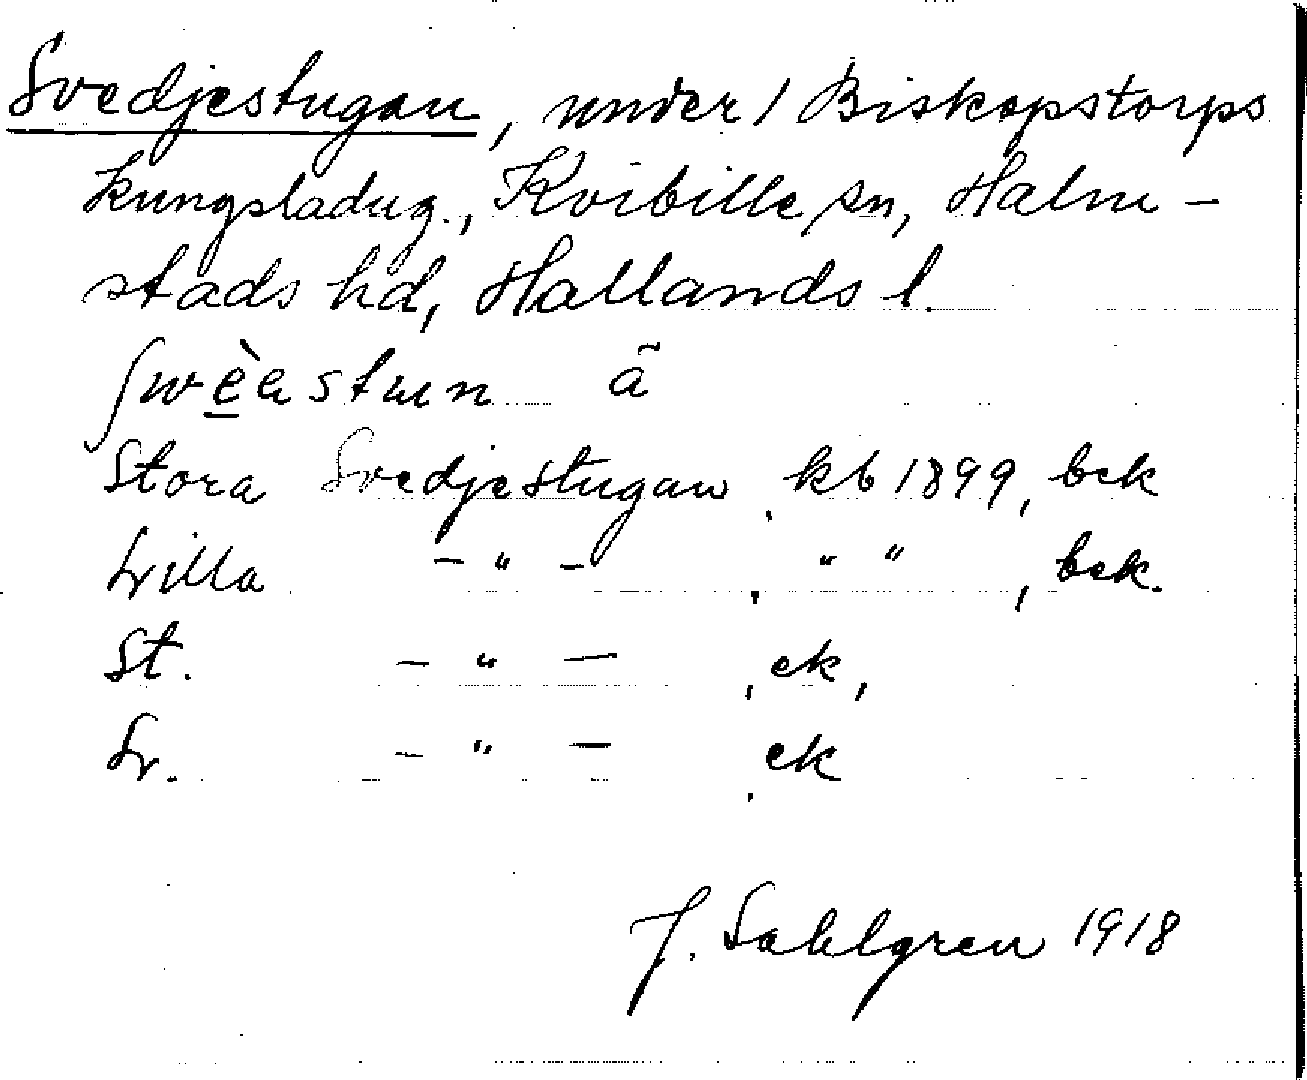 Svedjestugan, under 1 Biskopstorps
kungsladug., Kvibille sn, Halm-
stads hd, Hallands l.
ã
Stora Svedjestugan, kb 1899, bek
Lilla -"- , " " , bek.
St. -"- , ek,
L. -"- , ek
J. Sahlgren 1918